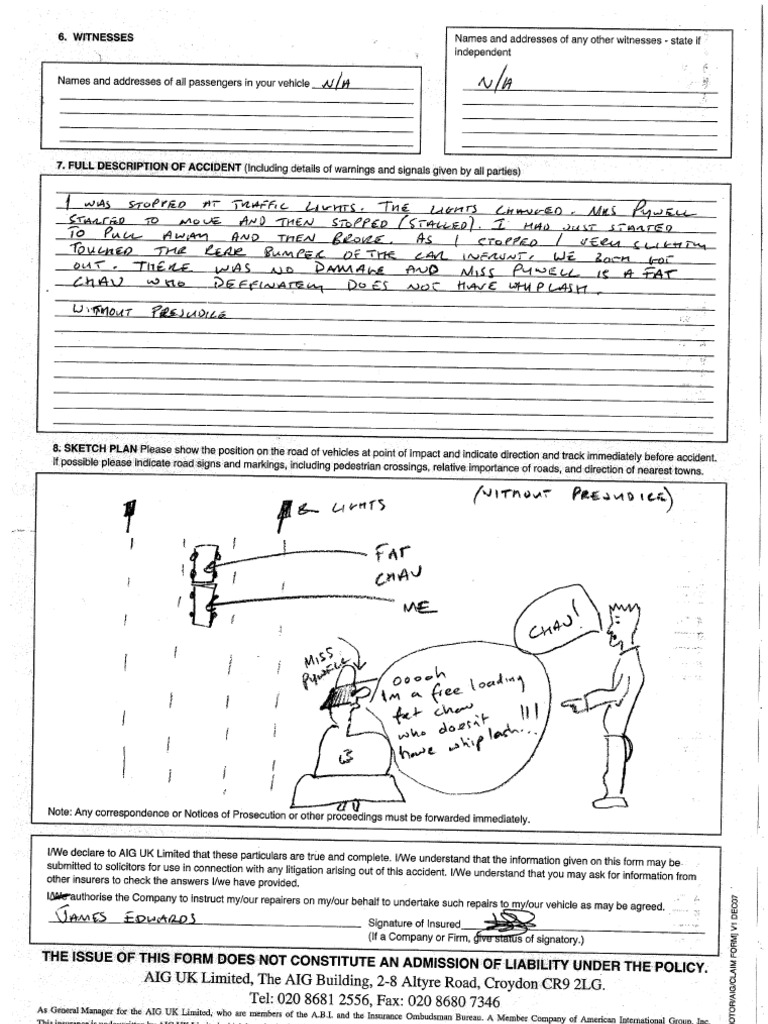 6. WITNESSES
Names and addresses of any other witnesses - state if
independent
Names and addresses of all passengers in your vehicle N/A
N/A
7. FULL DESCRIPTION OF ACCIDENT (Including details of warnings and signals given by all parties)
I WAS STOPPED AT TRAFFIC LIGHTS. THE LIGHTS CHANGED. MRS PYWELL
STARTED TO MOVE AND THEN STOPPED (STALLED). I HAD JUST STARTED
TO PULL AWAY AND THEN BROKE. AS I STOPPED I VERY SLIGHTLY
TOUCHED THE REAR BUMPER OF THE CAR INFRONT. WE BOTH GOT
OUT. THERE WAS NO DAMAGE AND MISS PYWELL IS A FAT
CHAV WHO DEFFINATELY DOES NOT HAVE WHIPLASH.
WITHOUT PREJUDICE
8. SKETCH PLAN Please show the position on the road of vehicles at point of impact and indicate direction and track immediately before accident.
If possible please indicate road signs and markings, including pedestrian crossings, relative importance of roads, and direction of nearest towns.
(WITHOUT PREJUDICE)
LIGHTS
FAT
CHAV
ME
CHAV!
MISS
PYWELL
ooooh
Im a free loading
fat chav
who doesn't
have whiplash...!!!
Note: Any correspondence or Notices of Prosecution or other proceedings must be forwarded immediately.
I/We declare to AIG UK Limited that these particulars are true and complete. I/We understand that the information given on this form may be
submitted to solicitors for use in connection with any litigation arising out of this accident. I/We understand that you may ask for information from
other insurers to check the answers I/we have provided.
I/We authorise the Company to instruct my/our repairers on my/our behalf to undertake such repairs to my/our vehicle as may be agreed.
JAMES EDWARDS
Signature of Insured
(If a Company or Firm, give status of signatory.)
THE ISSUE OF THIS FORM DOES NOT CONSTITUTE AN ADMISSION OF LIABILITY UNDER THE POLICY.
AIG UK Limited, The AIG Building, 2-8 Altyre Road, Croydon CR9 2LG.
Tel: 020 8681 2556, Fax: 020 8680 7346
As General Manager for the AIG UK Limited, who are members of the A.B.I. and the Insurance Ombudsman Bureau. A Member Company of American International Group, Inc.
MOTOR/AIG/CLAIM FORM] V1 DEC07